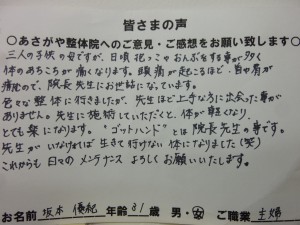 皆さまの声
○あさがや整体院へのご意見・ご感想をお願い致します○
三人の子供の母ですが、日頃抱っこおんぶをする事が多く
体のあちこちが痛くなります。頭痛が起こるほど、首や肩が
痛むので、院長先生にお世話になっています。
色々な整体に行きましたが、先生ほど上手な方に出会った事が
ありません。先生に施術していただくと、体が軽くなり
とても楽になります。"ゴットハンド"とは院長先生の事です。
先生がいなければ生きて行けない体になりました(笑)
これからも日々のメンテナンスよろしくお願いいたします。
お名前 坂本 優紀 年齢 31 歳 男・女 ご職業 主婦